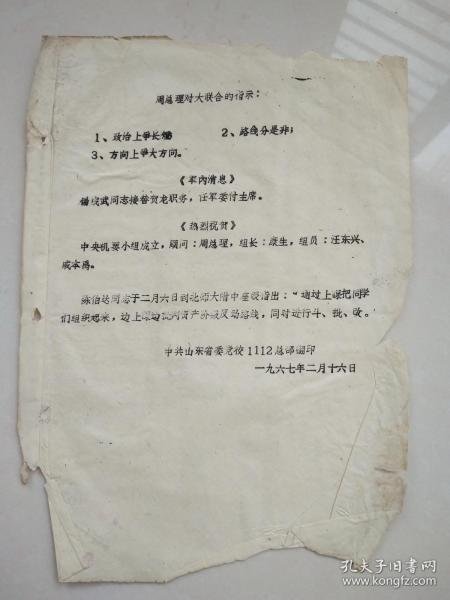 周总理对大联合的指示：
1、政治上争长短 2、路线分是非；
3、方向上争大方向。
《军内消息》
杨成武同志接替贺龙职务，任军委付主席。
《热烈祝贺》
中央机要小组成立，顾问：周总理，组长：康生，组员：汪东兴、
戚本禹。
陈伯达同志于二月六日到北师大附中座谈指出：“通过上课把同学
们组织起来，边上课边批判资产阶级反动路线，同时进行斗、批、改。
中共山东省委党校1112总部翻印
一九六七年二月十六日
孔夫子旧书网
www.kongfz.com